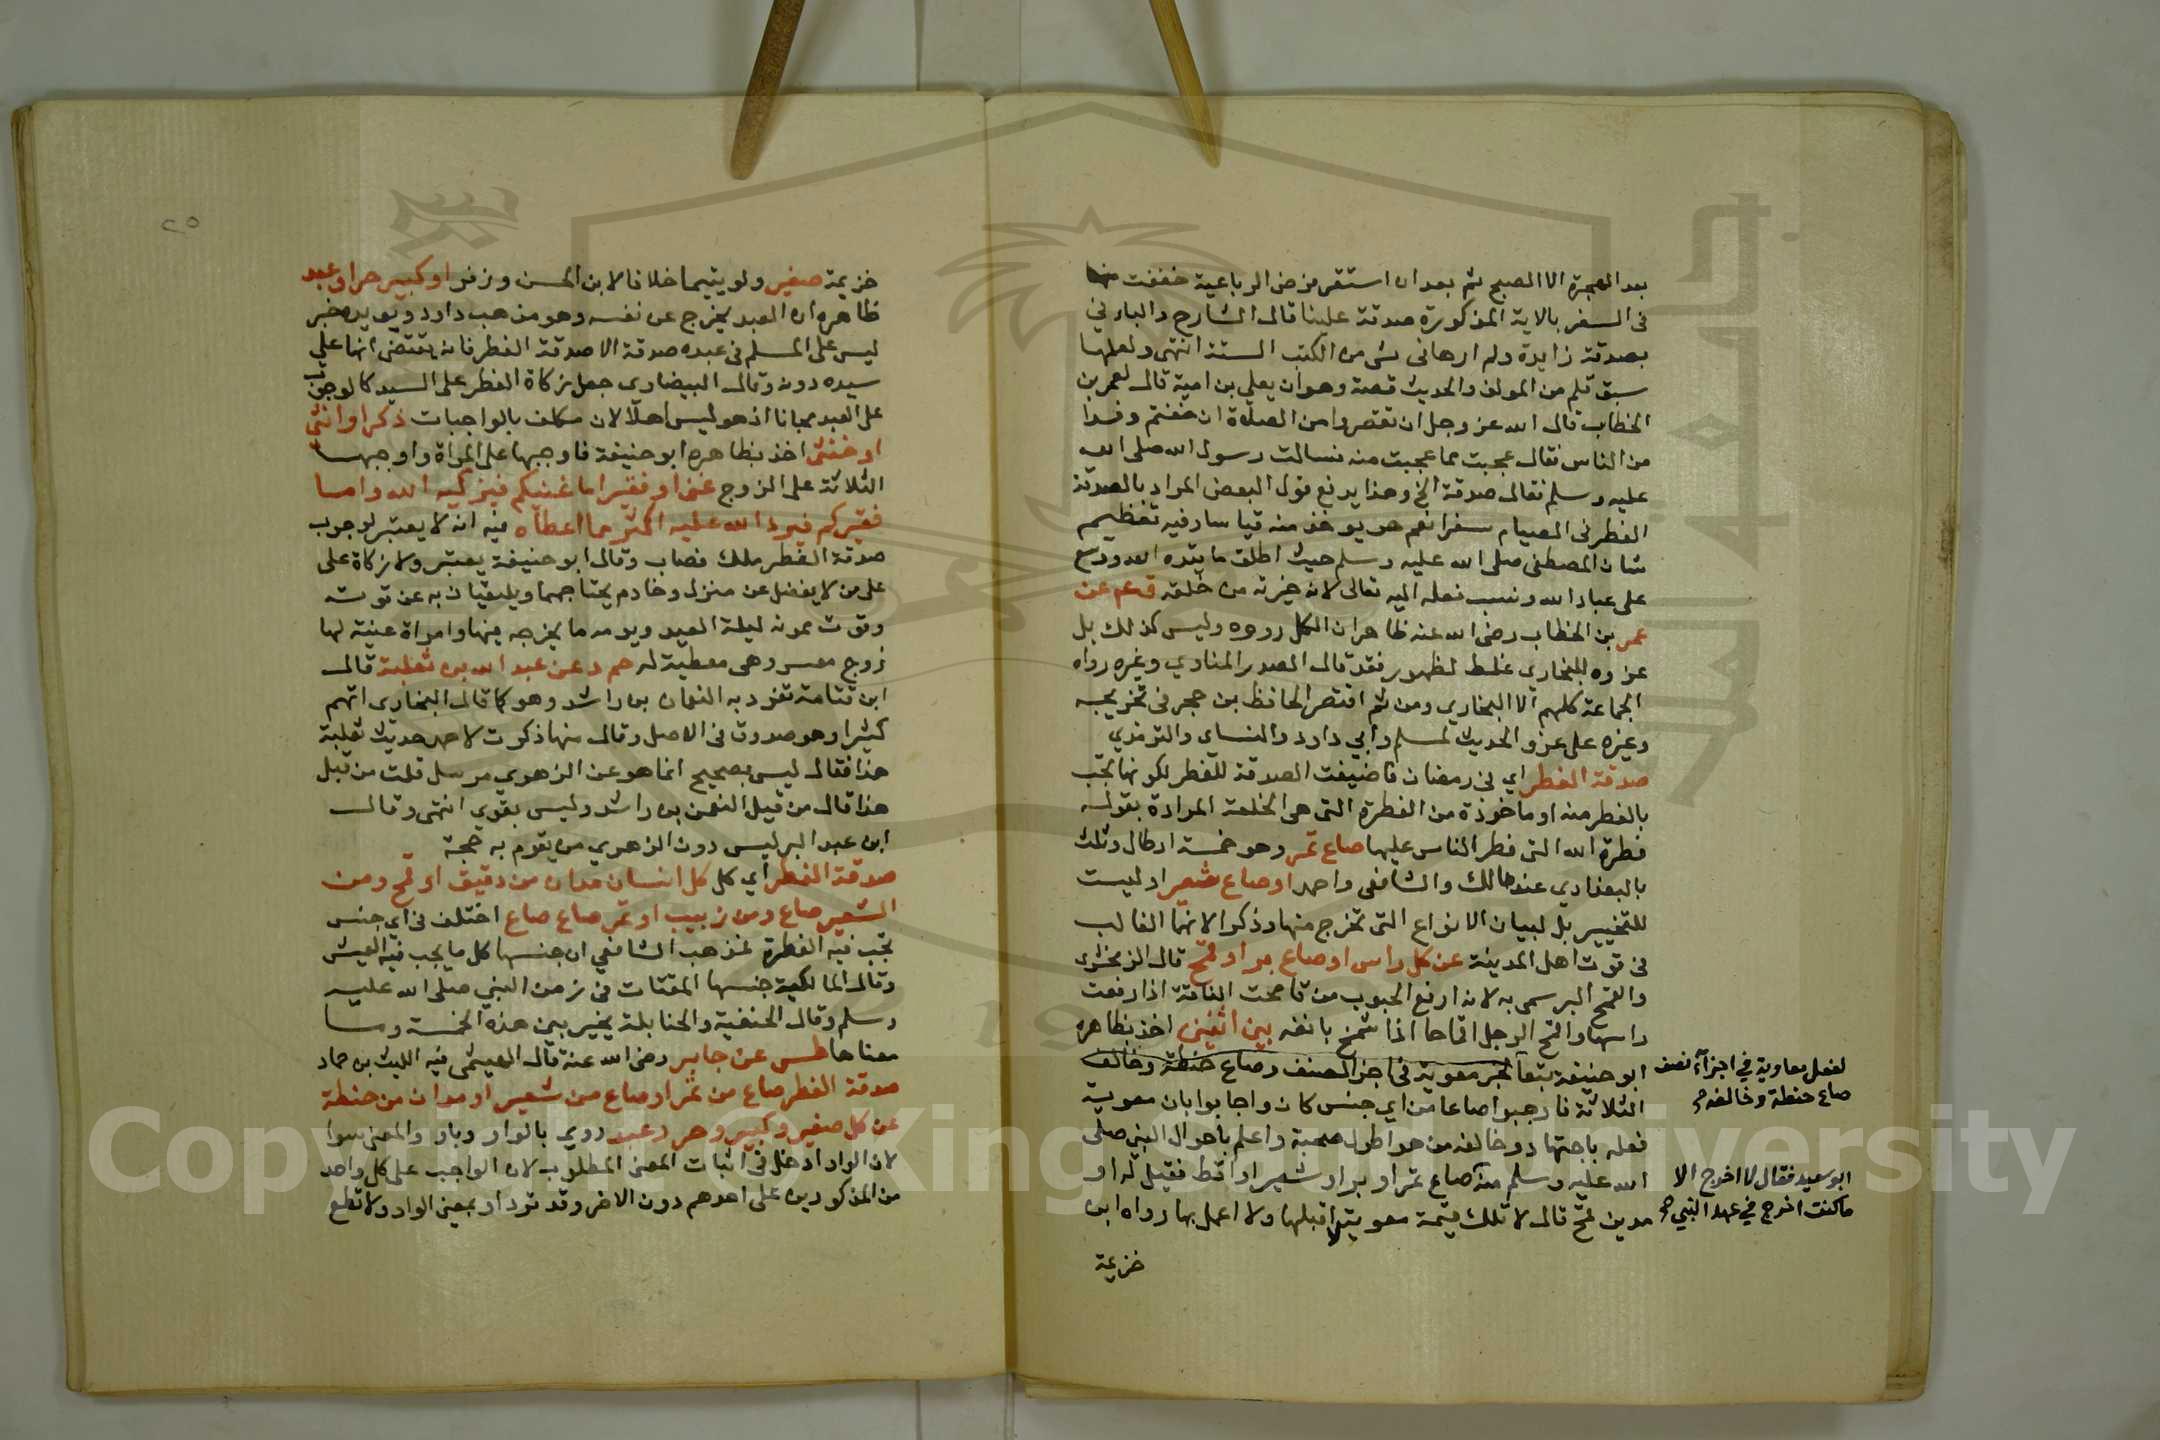 بعد الهجرة الا الصبح ثم بعد ان استقر فرض الرباعية خففت منها
فى السفر بالاية المذكورة صدقة علينا قال الشارح والباء في
بصدقة زايدة ولم ارها فى شى من الكتب الستة انتهى ولعلها
سبق قلم من المولف والحديث قصة وهو ان يعلي بن امية قال لعمر بن
الخطاب قال الله عز وجل ان تقصروا من الصلاة ان خفتم وقد ا
من الناس فقال عجبت مما عجبت منه فسالت رسول الله صلى الله
عليه وسلم فقال صدقة الخ وهذا يدفع قول البعض المراد بالصدقة
الفطر فى الصيام سفرا نعم هو يوخذ منه قياسا وفيه تعظيم
شان المصطفى صلى الله عليه وسلم حيث اطلق ما قيده الله ووسع
على عباد الله ونسب فعله اليه تعالى لانه خيرته من خلقه ق عم عن
عمر بن الخطاب رضى الله عنه ظاهر ان الكل رووه وليس كذلك بل
عزوه للبخاري غلط لظهور فقد قال الصدر المناوي وغيره رواه
الجماعة كلهم الا البخاري ومن ثم اقتصر الحافظ بن حجر فى تخريجه
وغيره على عزو الحديث لمسلم وابي داود والنساى والترمذي
صدقة الفطر اي فى رمضان فاضيفت الصدقة للفطر لكونها تجب
بالفطر منه او ماخوذة من الفطرة التى هى الخلقة المرادة بقوله
فطرة الله التى فطر الناس عليها صاع تمر وهو خمسة ارطال وثلث
بالبغدادي عند مالك والشافعى واحمد او صاع شعير او ليست
للتخيير بل لبيان الانواع التى تخرج منها وذكرا لانهما الغالب
فى قوت اهل المدينة عن كل راس او صاع بر او قمح قال الزمخشرى
والقمح البر سمى به لانه ارفع الحبوب من قامحت الناقة اذا رفعت
راسها واقمح الرجل اقماحا اذا شمخ بانفه بين اثنين اخذ بظاهره
ابو حنيفة تبعا لخبر معوية فى اجزا نصف صاع حنطة وخالف
الثلاثة فاوجبوا صاعا من اي جنس كان واجابوا بان معوية
فعله باجتهاد وخالفه من هو اطول صحبة واعلم باحوال النبي صلى
الله عليه وسلم منه صاع تمر او بر او شعير او اقط فقيل له او
مدين قمح قال لا تلك قيمة معوية لا اقبلها ولا اعمل بها رواه ابن
خزيمة
لفعل معاوية في اجزآء نصف
صاع حنطة وخالفه
ابو سعيد فقال لا اخرج الا
ما كنت اخرج في عهد النبي
٢٥
خزيمة صغير ولو يتيما خلافا لابن الحسن وزفر او كبير حر او عبد
ظاهره ان العبد يخرج عن نفسه وهو مذهب داود ويويده خبر
ليس على المسلم فى عبده صدقة الا صدقة الفطر فانه يقتضى انها على
سيده دونه وقال البيضاوى جعل زكاة الفطر على السيد كالوجوب
على العبد مجازا اذ هو ليس اهلا لان يكلف بالواجبات ذكر او انثى
او خنثى اخذ بظاهره ابو حنيفة فاوجبها على المراة واوجبها
الثلاثة على الزوج غنى او فقير اما غنيكم فيزكيه الله واما
فقيركم فيرد الله عليه اكثر مما اعطاه فيه انه لا يعتبر لوجوب
صدقة الفطر ملك نصاب وقال ابو حنيفة يعتبر ولا زكاة على
على من لا يفضل عن منزل وخادم يحتاجهما ويليقان به عن قوته
وقوت ممونه ليلة العيد ويومه ما يخرجه فيها وامراة غنية لها
زوج معسر وهى مطيعة له حم د عن عبد الله بن ثعلبة قال
ابن قتامة تفرد به النعمان بن راشد وهو كما قال البخارى اتهم
كثيرا وهو صدوق فى الاصل وقال مهنا ذكرت لاحمد حديث ثعلبة
هذا فقال ليس بصحيح انما هو عن الزهري مرسل قلت من قبل
هذا قال من قبل النعمن بن راشد وليس بقوي انتهى وقال
ابن عبد البر ليس دون الزهري من يقوم به حجة
صدقة الفطر اي كل كل انسان مدان من دقيق او قمح ومن
الشعير صاع ومن زبيب او تمر صاع صاع اختلف فى اي جنس
تجب فيه الفطرة فمذهب الشافعي ان جنسها كل ما يجب فيه العشر
وقال المالكية جنسها المقتات فى زمن النبي صلى الله عليه
وسلم وقال الحنفية والحنابلة يخير بين هذه الخمسة وما
معناها طس عن جابر رضى الله عنه قال الهيثمى فيه الليث بن حماد
صدقة الفطر صاع من تمر او صاع من شعير او مدان من حنطة
عن كل صغير وكبير وحر وعبد روي بالواو وباو والمعنى سوا
لان الواو ادخل فى اثبات المعنى المطلوب لان الواجب على كل واحد
من المذكورين على احدهم دون الاخر وقد ترد او بمعنى الواو ولا تطع
Copyright © King Saud University